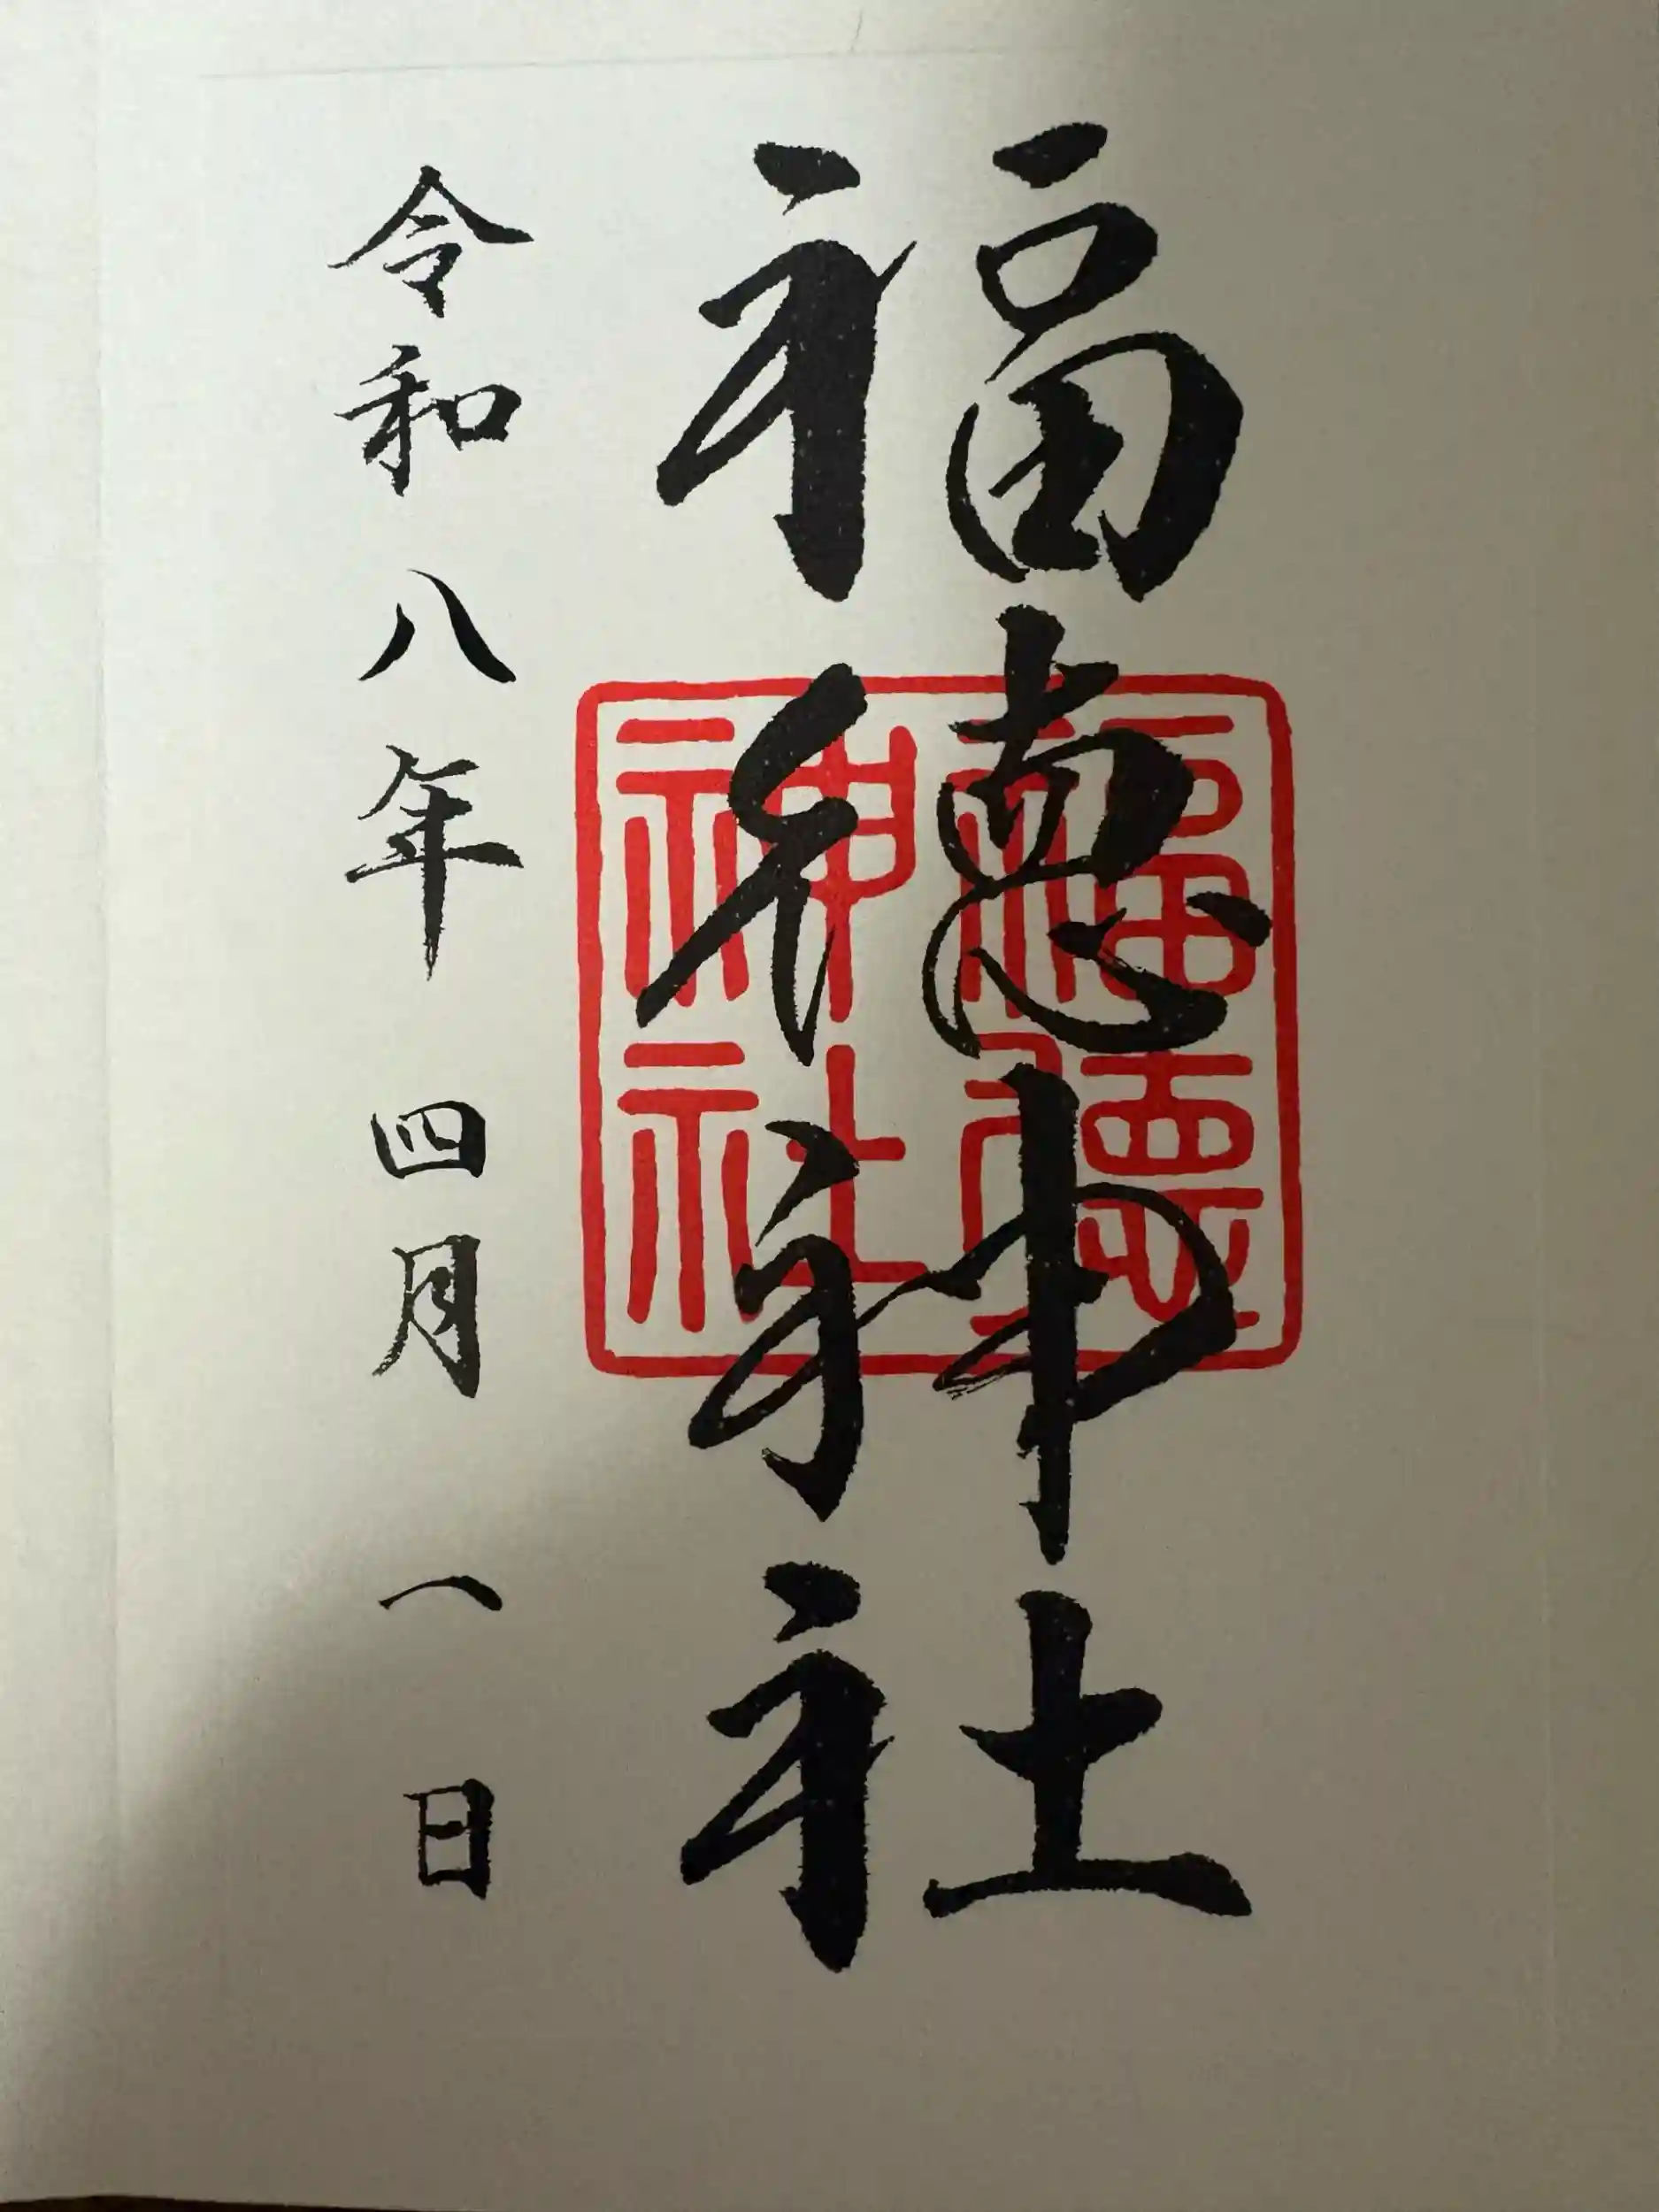 福徳神社
福徳神社
令和八年四月一日